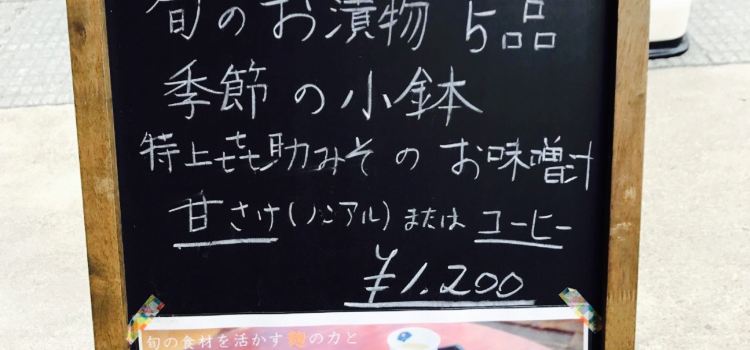 旬のお漬物 5品
季節の小鉢
特上㐂助みそのお味噌汁
甘さけ(ノンアル)またはコーヒー
¥1,200
旬の食材を活かす麹の力と